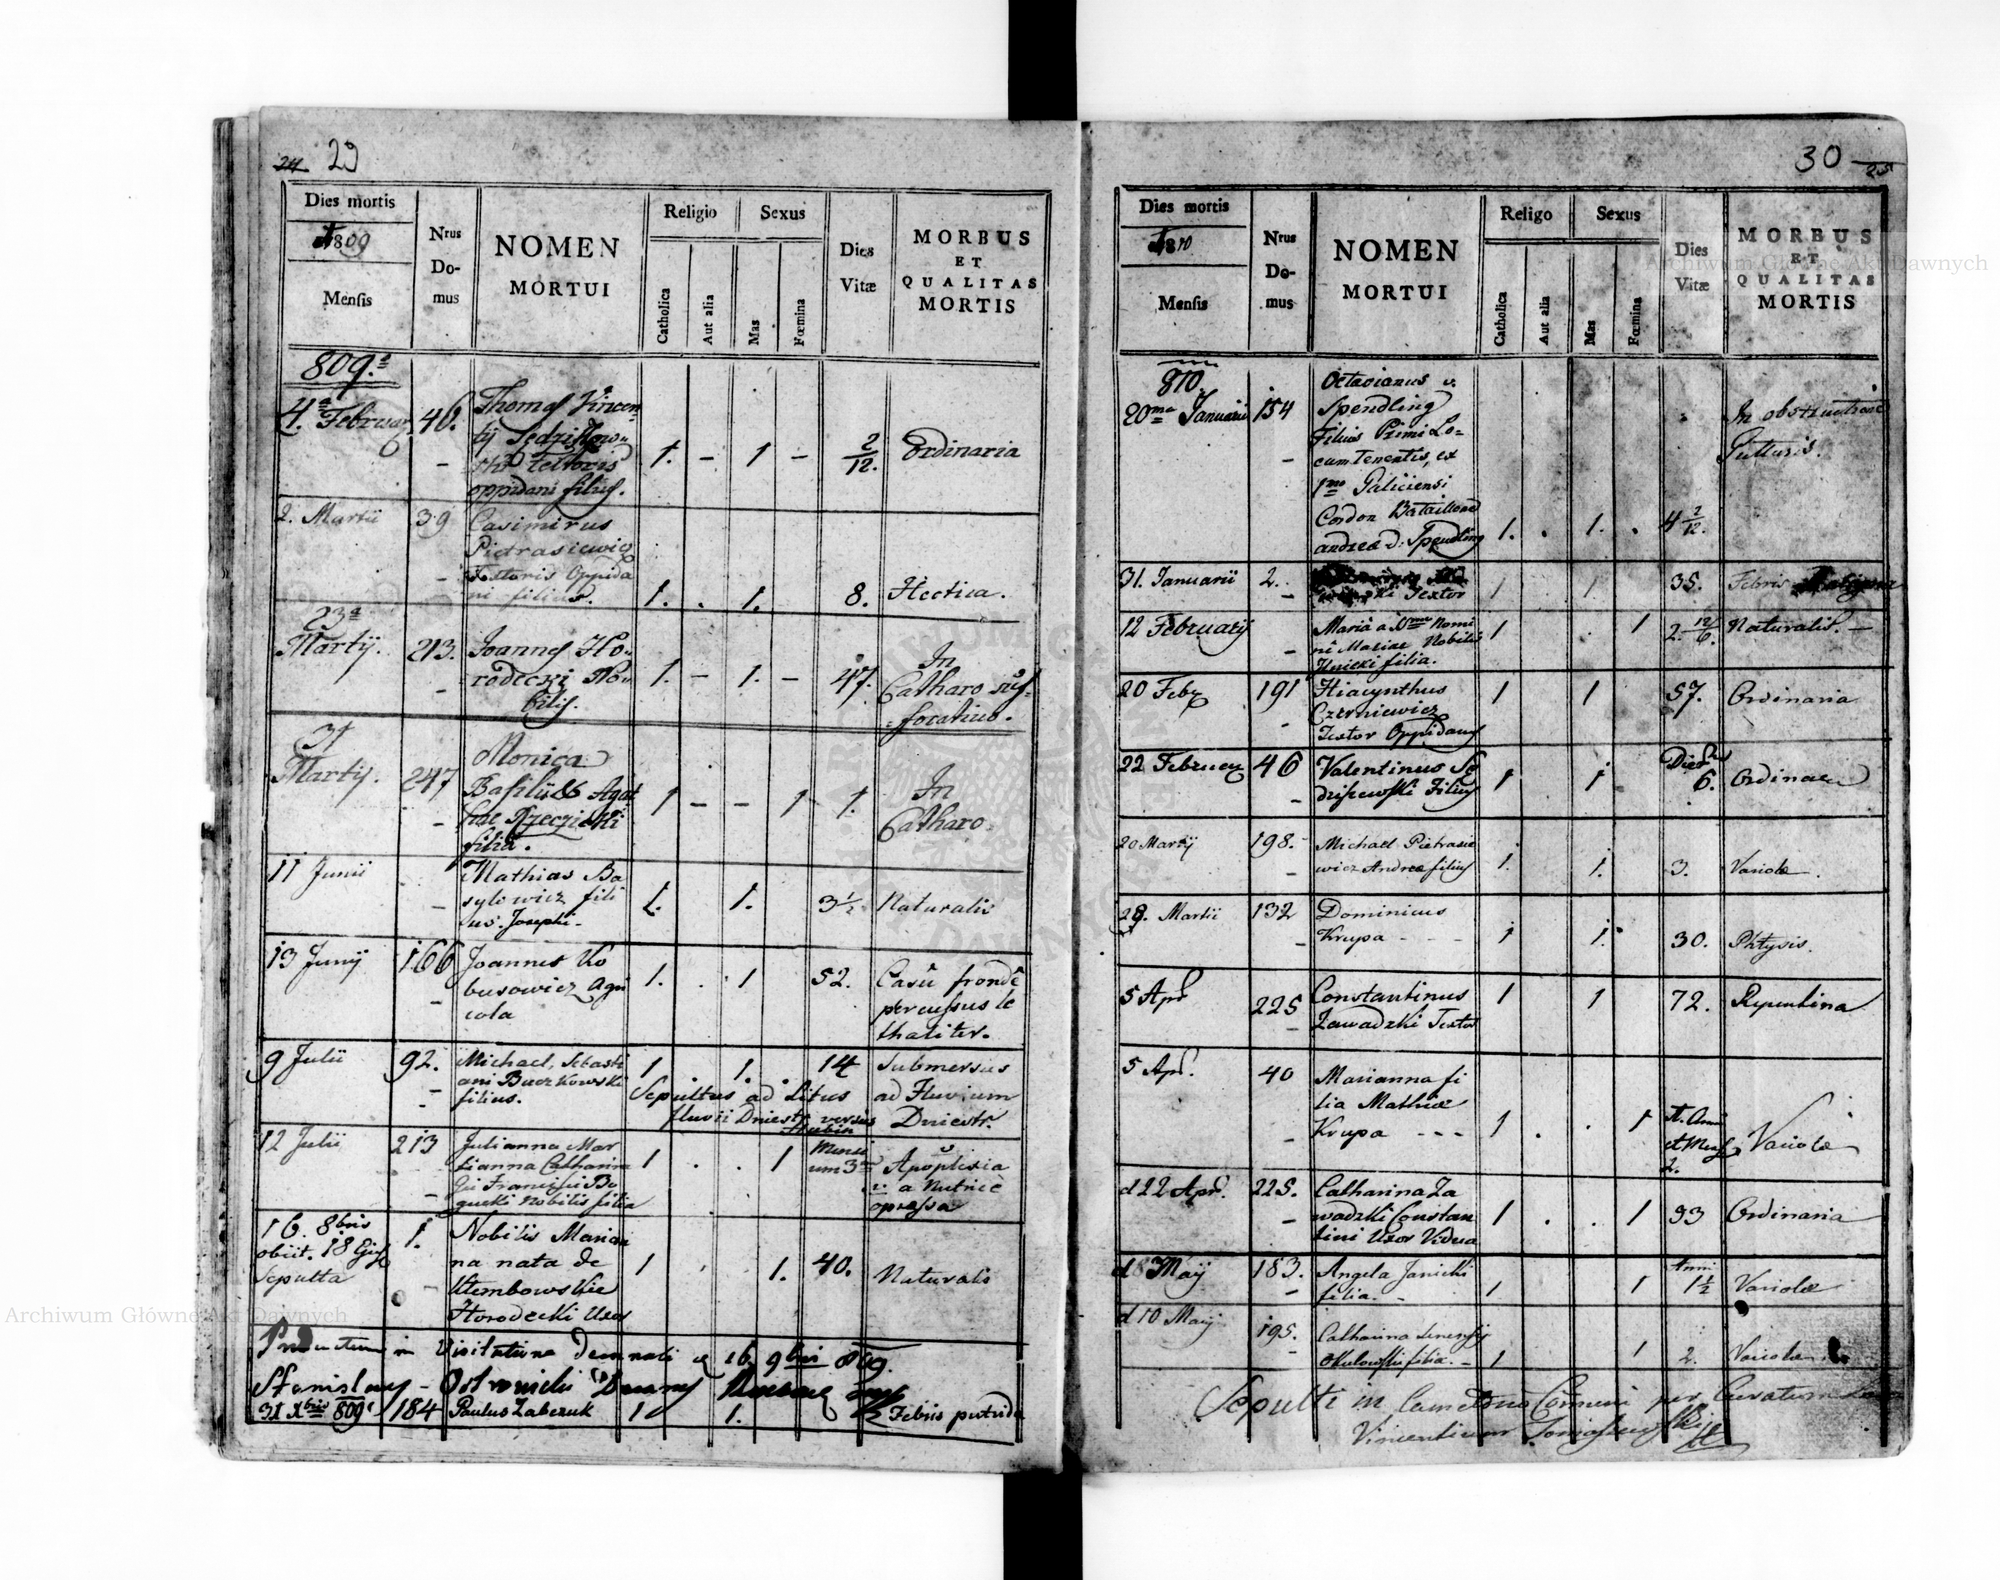 24 29
Dies mortis
1809
Mensis
Nrus
Do-
mus
NOMEN
MORTUI
Religio
Catholica
Aut alia
Sexus
Mas
Fœmina
Dies
Vitæ
MORBUS
ET
QUALITAS
MORTIS
809.
4. Februar 46. Thomas Vincen
tij
oppidani filius. 1. - 1 - 2/12. Ordinaria
2. Martii 39 Casimirus
Pietrasiewicz
Textoris Oppida
ni filius. 1. . 1. 8. Hectica.
23a
Martij. 213. Joannes Ho
rodecki No
bilis. 1. - 1. - 47. In
Catharo suf
focativo.
31
Martij. 247 Monica
Basilii & Agat
hae Rzeczicki
filia. 1 - - 1 1. In
Catharo.
11 Junii Mathias Ba
sylowicz fili
us Josephi 1. 1. 3 1/2 Naturalis
13 Junij 166 Joannes Ko
busowicz Agri
cola 1. . 1 52. Casu fronde
percussus le
thaliter.
9 Julii 92. Michael, Sebasti
ani Buczkowski
filius. 1 . 1. . 14 Submersus
ad Fluvium
Dniestr.
Sepultus ad Litus
fluvii Dniestr versus
12 Julii 213 Julianna Mar
tianna Catharina
Nobilis filia 1 . . 1 Mensi
um 3 Apoplexia
a Nutrice
opressa
16. 8bris
obiit. 18 Ejus
Sepulta 1. Nobilis Marian
na nata de
Horodecki Uxor 1 1. 40. Naturalis
Productum in Visitatione Decanali d 16 9bris 809.
Stanislaus Ostrowicki Decanus
31 Xbris 809 184 Paulus Zabczuk 1 1. Febris putrida
30 25
Dies mortis
1810
Mensis
Nrus
Do-
mus
NOMEN
MORTUI
Religo
Catholica
Aut alia
Sexus
Mas
Fœmina
Dies
Vitæ
MORBUS
ET
QUALITAS
MORTIS
810.
20ma Januarii 154 Octavianus v.
Spendling
Filius Primi Lo-
cumtenentis, ex
1mo Galiciensi
Cordon Bataillone
andrea d: Spendling 1. . 1. . 4 2/12. In obstructione
Gutturis.
31. Januarii 2. Textor 1 1 35. Febris
12 Februarij Maria
Nobilis
filia. 1 . 1 2. Naturalis. -
20 Feb 191 Hiacynthus
Czerniewicz
Textor Oppidanus 1 1 57. Ordinaria
22 Februar 46 Valentinus Se
dziszewski Filius 1 1 Dies
6. Ordinaria
20 Martij 198. Michael Pietrasie
wicz Andreae filius 1. 1. 3. Variolæ.
28. Martii 132 Dominicus
Krupa - - - 1 1. 30. Phtysis.
5 Apr 225 Constantinus
Zawadzki Textor 1 1 72. Repentina
5 Apr. 40 Marianna fi
lia Mathiæ
Krupa - - - 1 . . 1
2. Variolæ
d 22 Apr. 225. Catharina Za
wadzki Constan
tini Uxor Vidua 1 . . 1 93 Ordinaria
d 8 Maij 183. Angela Janicki
filia. - 1 1 Anni
1 1/2 Variolæ
d 10 Maij 195. Catharina
filia. - 1 1 2. Variolæ
Sepulti in Cemeterio Comuni per Curatum
Vincentium
Archiwum Główne Akt Dawnych
Archiwum Główne Akt Dawnych